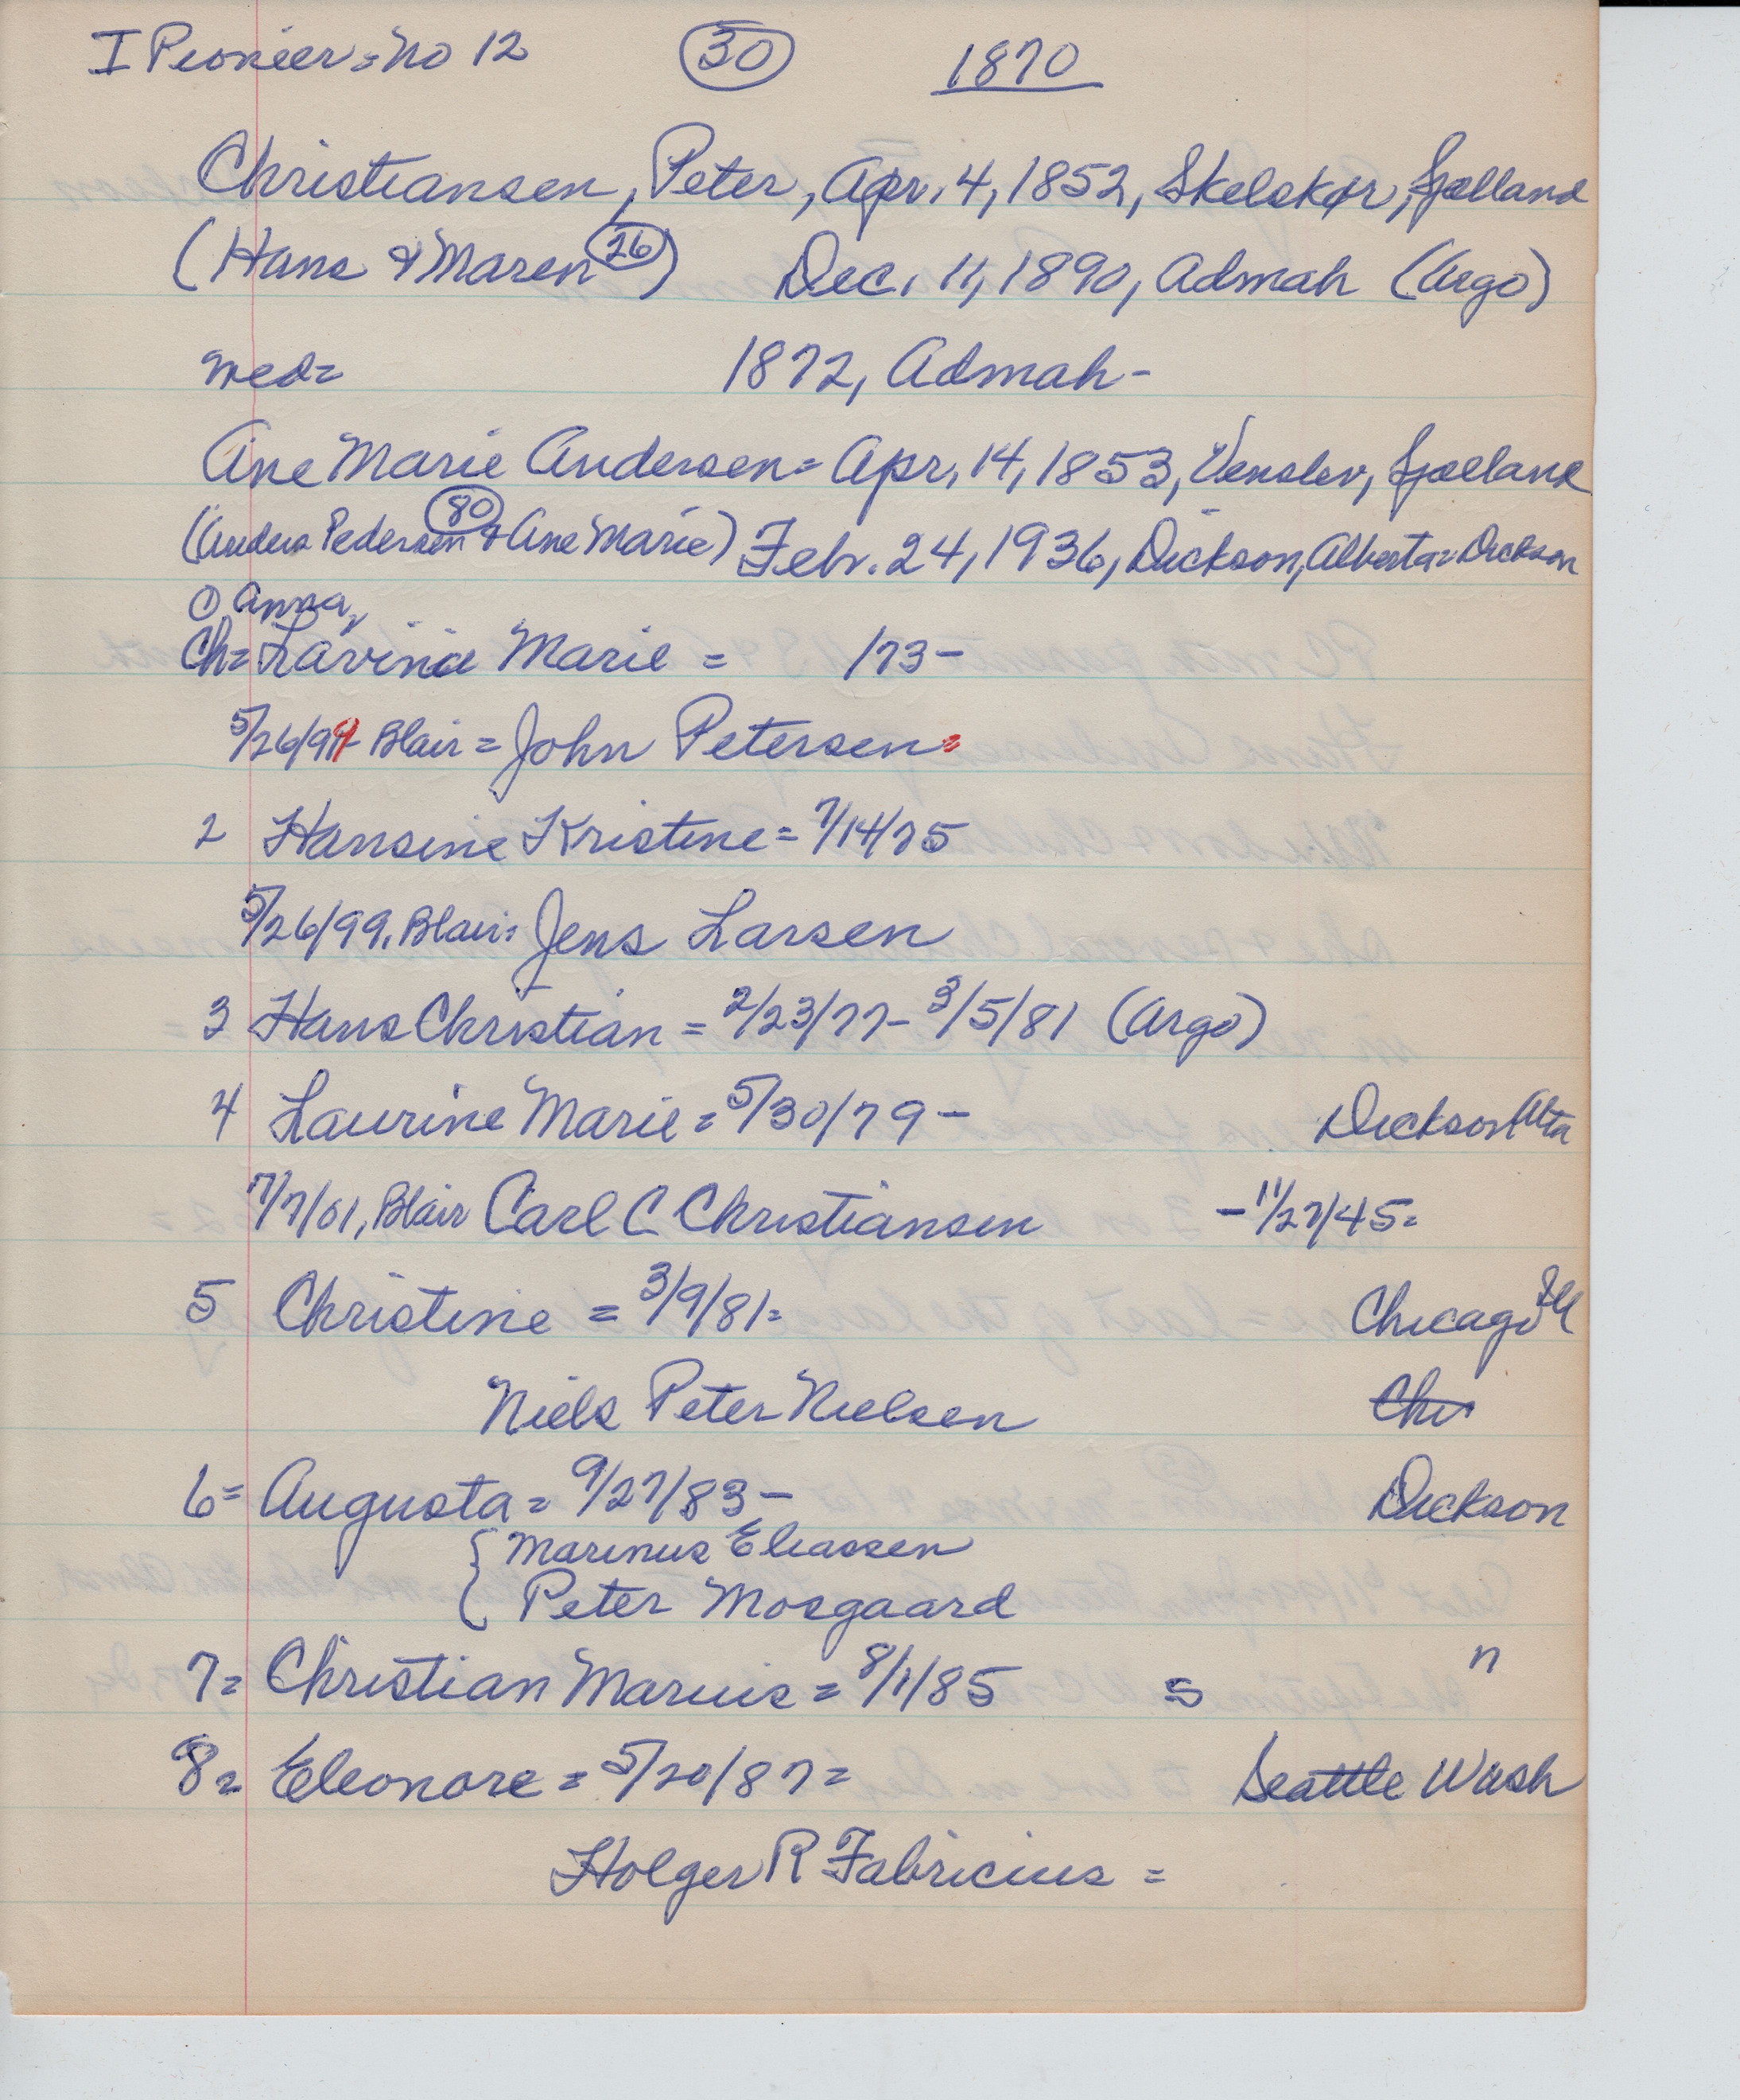 I Pioneer = No 12 (30) 1870
Christiansen, Peter, Apr. 4, 1852, Skelskør, Sjælland
(Hans & Maren (26)) Dec. 11, 1890, Admah (Argo)
med= 1872, Admah -
Ane Marie Andersen = Apr. 14, 1853, Venslev, Sjælland
(Anders Pedersen (80) & Ane Marie) Feb. 24, 1936, Dickson, Alberta = Dickson
① Anna,
Ch= Lavina Marie = /73 -
5/26/99 Blair = John Petersen =
2 Hansine Kristine = 7/14/75
5/26/99, Blair = Jens Larsen
3 Hans Christian = 2/23/77 - 3/5/81 (Argo)
4 Laurine Marie = 5/30/79 - Dickson Alta
7/7/01, Blair Carl C Christiansen - 11/27/45 =
5 Christine = 3/9/81 = Chicago Ill
Niels Peter Nielsen Chi
6 = Augusta = 9/27/83 - Dickson
{ Marinus Eliassen
{ Peter Mosgaard
7 = Christian Marius = 8/1/85 = "
8 = Eleonore = 5/20/87 = Seattle Wash
Holger R Fabricius =